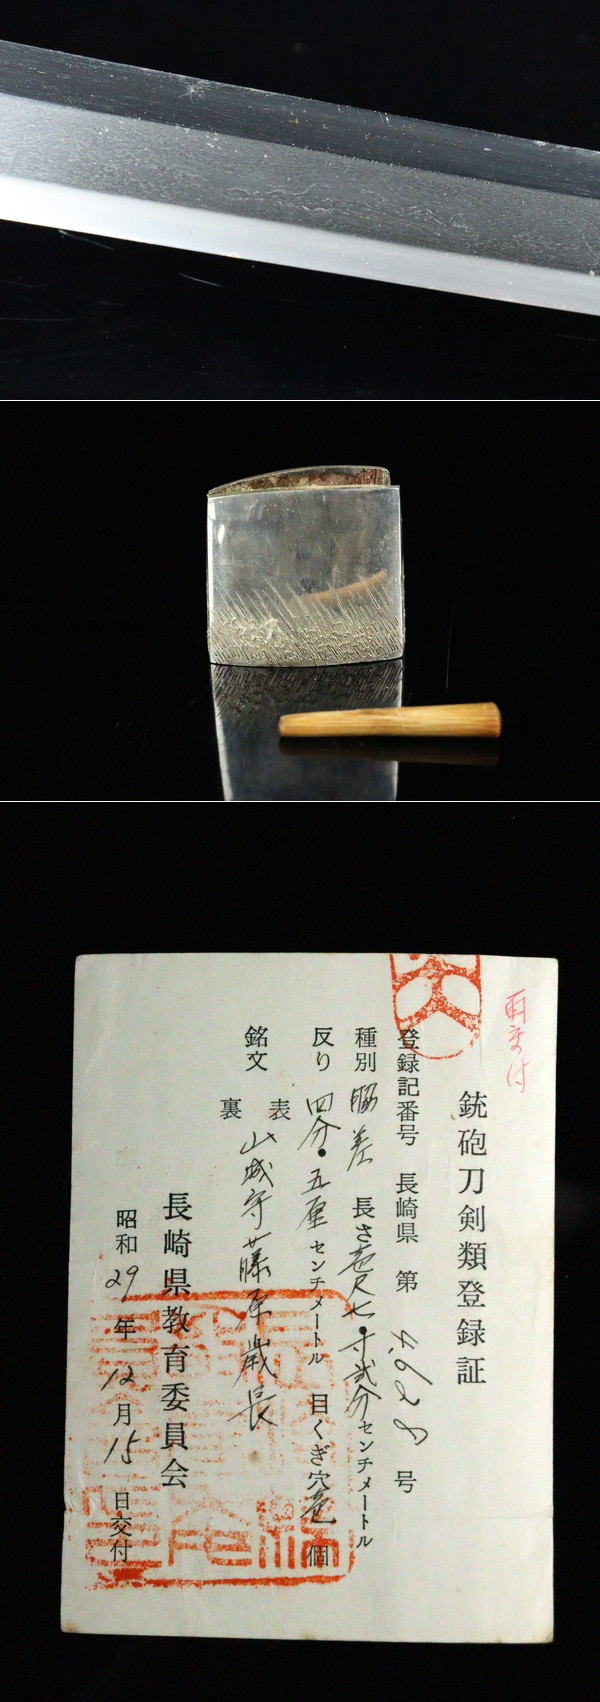 再交付
銃砲刀剣類登録証
登録記番号 長崎県 第 号
種別 脇差 長さ壱尺七・寸弐分センチメートル
反り 四分・五厘センチメートル 目くぎ穴壱個
銘文 表 山城守藤原歳長
裏
長崎県教育委員会
昭和29年12月15日交付